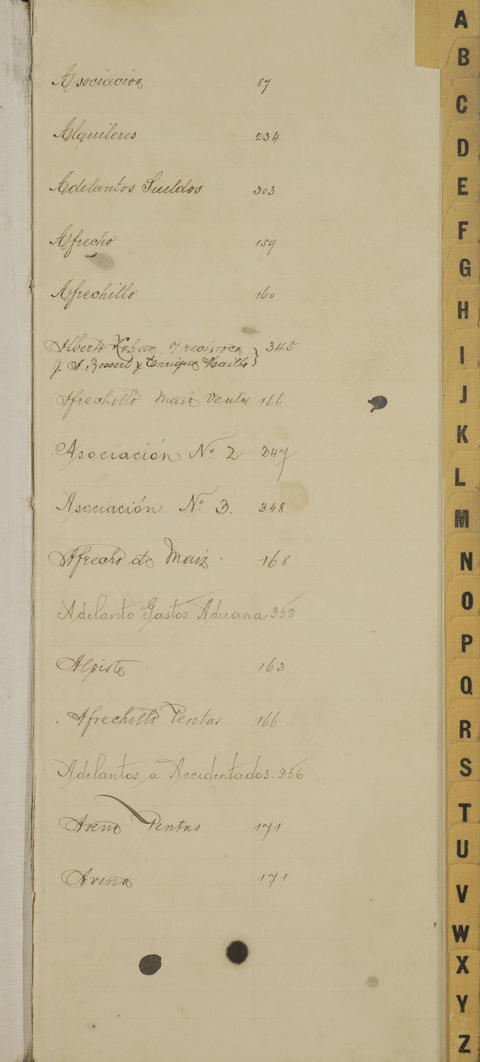 Asociación 87
Alquileres 234
Adelantos Sueldos 303
Afrecho 159
Afrechillo 160
Alberto 345
J. A. Bossert y Enrique
Afrechillo Maiz Ventas 166
Asociación Nº 2 347
Asociación Nº 3. 348
Afrecho de Maiz 168
Adelanto Gastos Aduana 353
Alpiste 163
Afrechillo Ventas 166
Adelantos a Accidentados. 356
Avena Ventas 171
Avena 171
A
B
C
D
E
F
G
H
I
J
K
L
M
N
O
P
Q
R
S
T
U
V
W
X
Y
Z